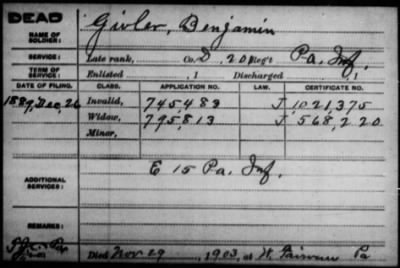 DEAD
NAME OF SOLDIER: Givler, Benjamin
SERVICE: Late rank, Co. D, 201 Reg't Pa. Inf.
TERM OF SERVICE: Enlisted , 1 Discharged , 1
DATE OF FILING. CLASS. APPLICATION NO. LAW. CERTIFICATE NO.
1889, Dec, 26 Invalid, 745,483 J 1,021,375
Widow, 795,813 J 568,220
Minor,
ADDITIONAL SERVICES: E 15 Pa. Inf.
REMARKS:
Died Nov 29, 1903, at Pa